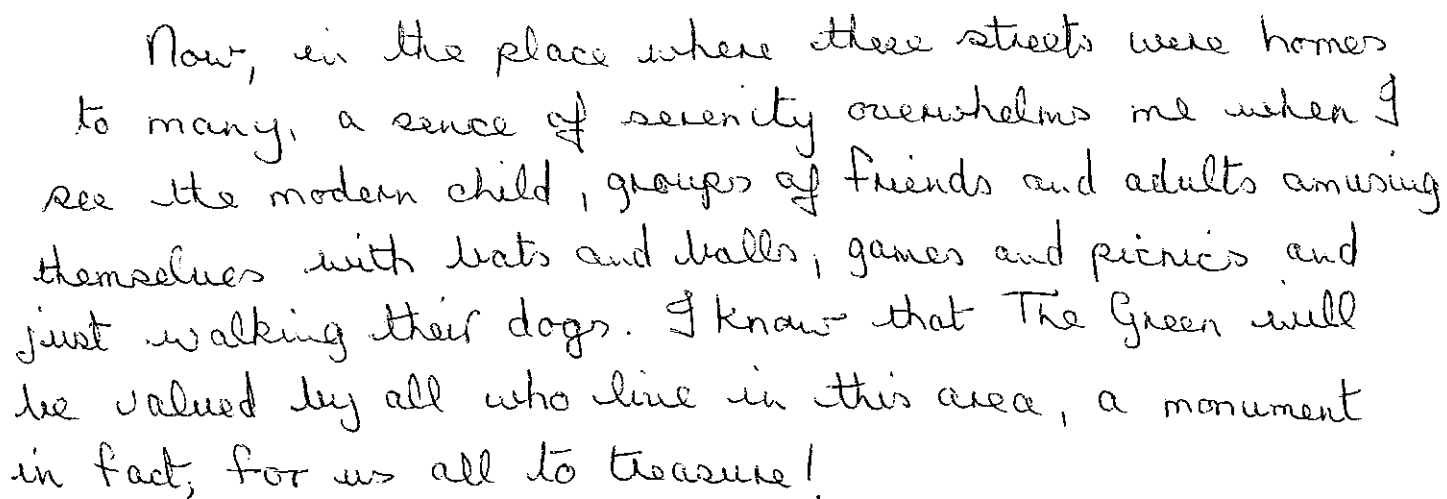 Now, in the place where these streets were homes
to many, a sence of serenity overwhelms me when I
see the modern child, groups of friends and adults amusing
themselves with bats and balls, games and picnics and
just walking their dogs. I know that The Green will
be valued by all who live in this area, a monument
in fact, for us all to treasure!